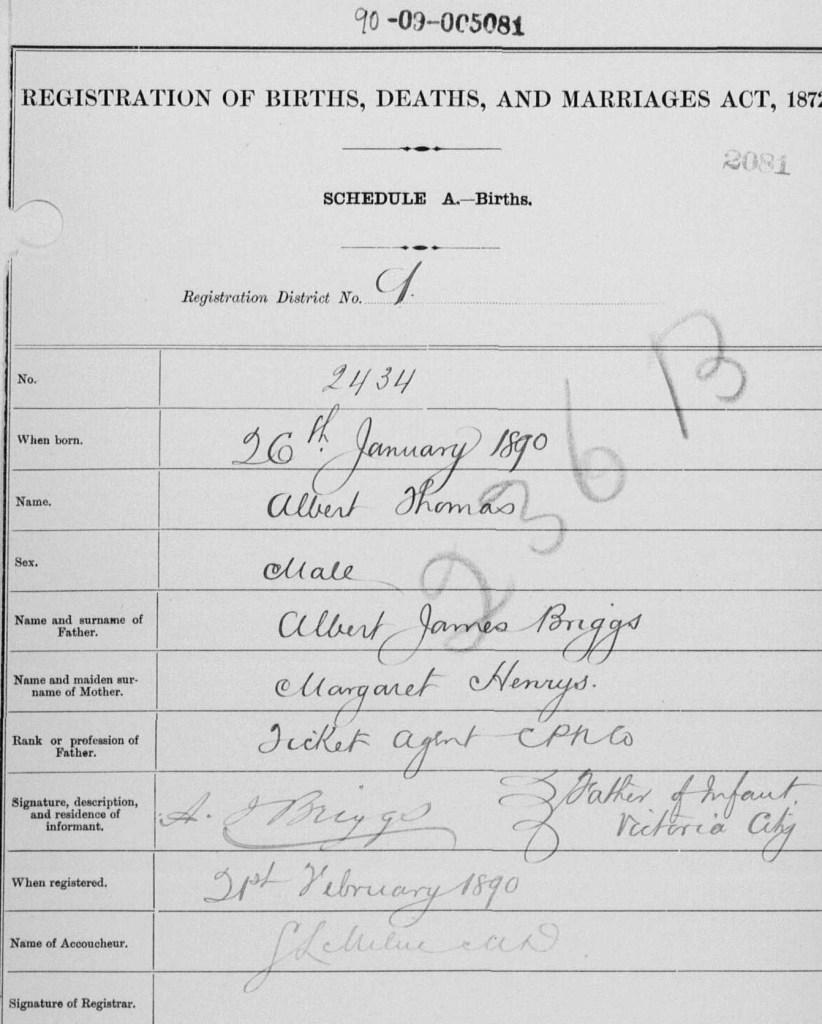 90-09-005081
REGISTRATION OF BIRTHS, DEATHS, AND MARRIAGES ACT, 1872
2081
SCHEDULE A.—Births.
Registration District No. 9.
No. 2434
236B
When born. 26th January 1890
Name. Albert Thomas
Sex. Male
Name and surname of Father. Albert James Briggs
Name and maiden surname of Mother. Margaret Henrys.
Rank or profession of Father. Ticket Agent CPN Co
Signature, description, and residence of informant. A. J Briggs } Father of Infant. Victoria City
When registered. 21st February 1890
Name of Accoucheur. G L Milne MD.
Signature of Registrar.